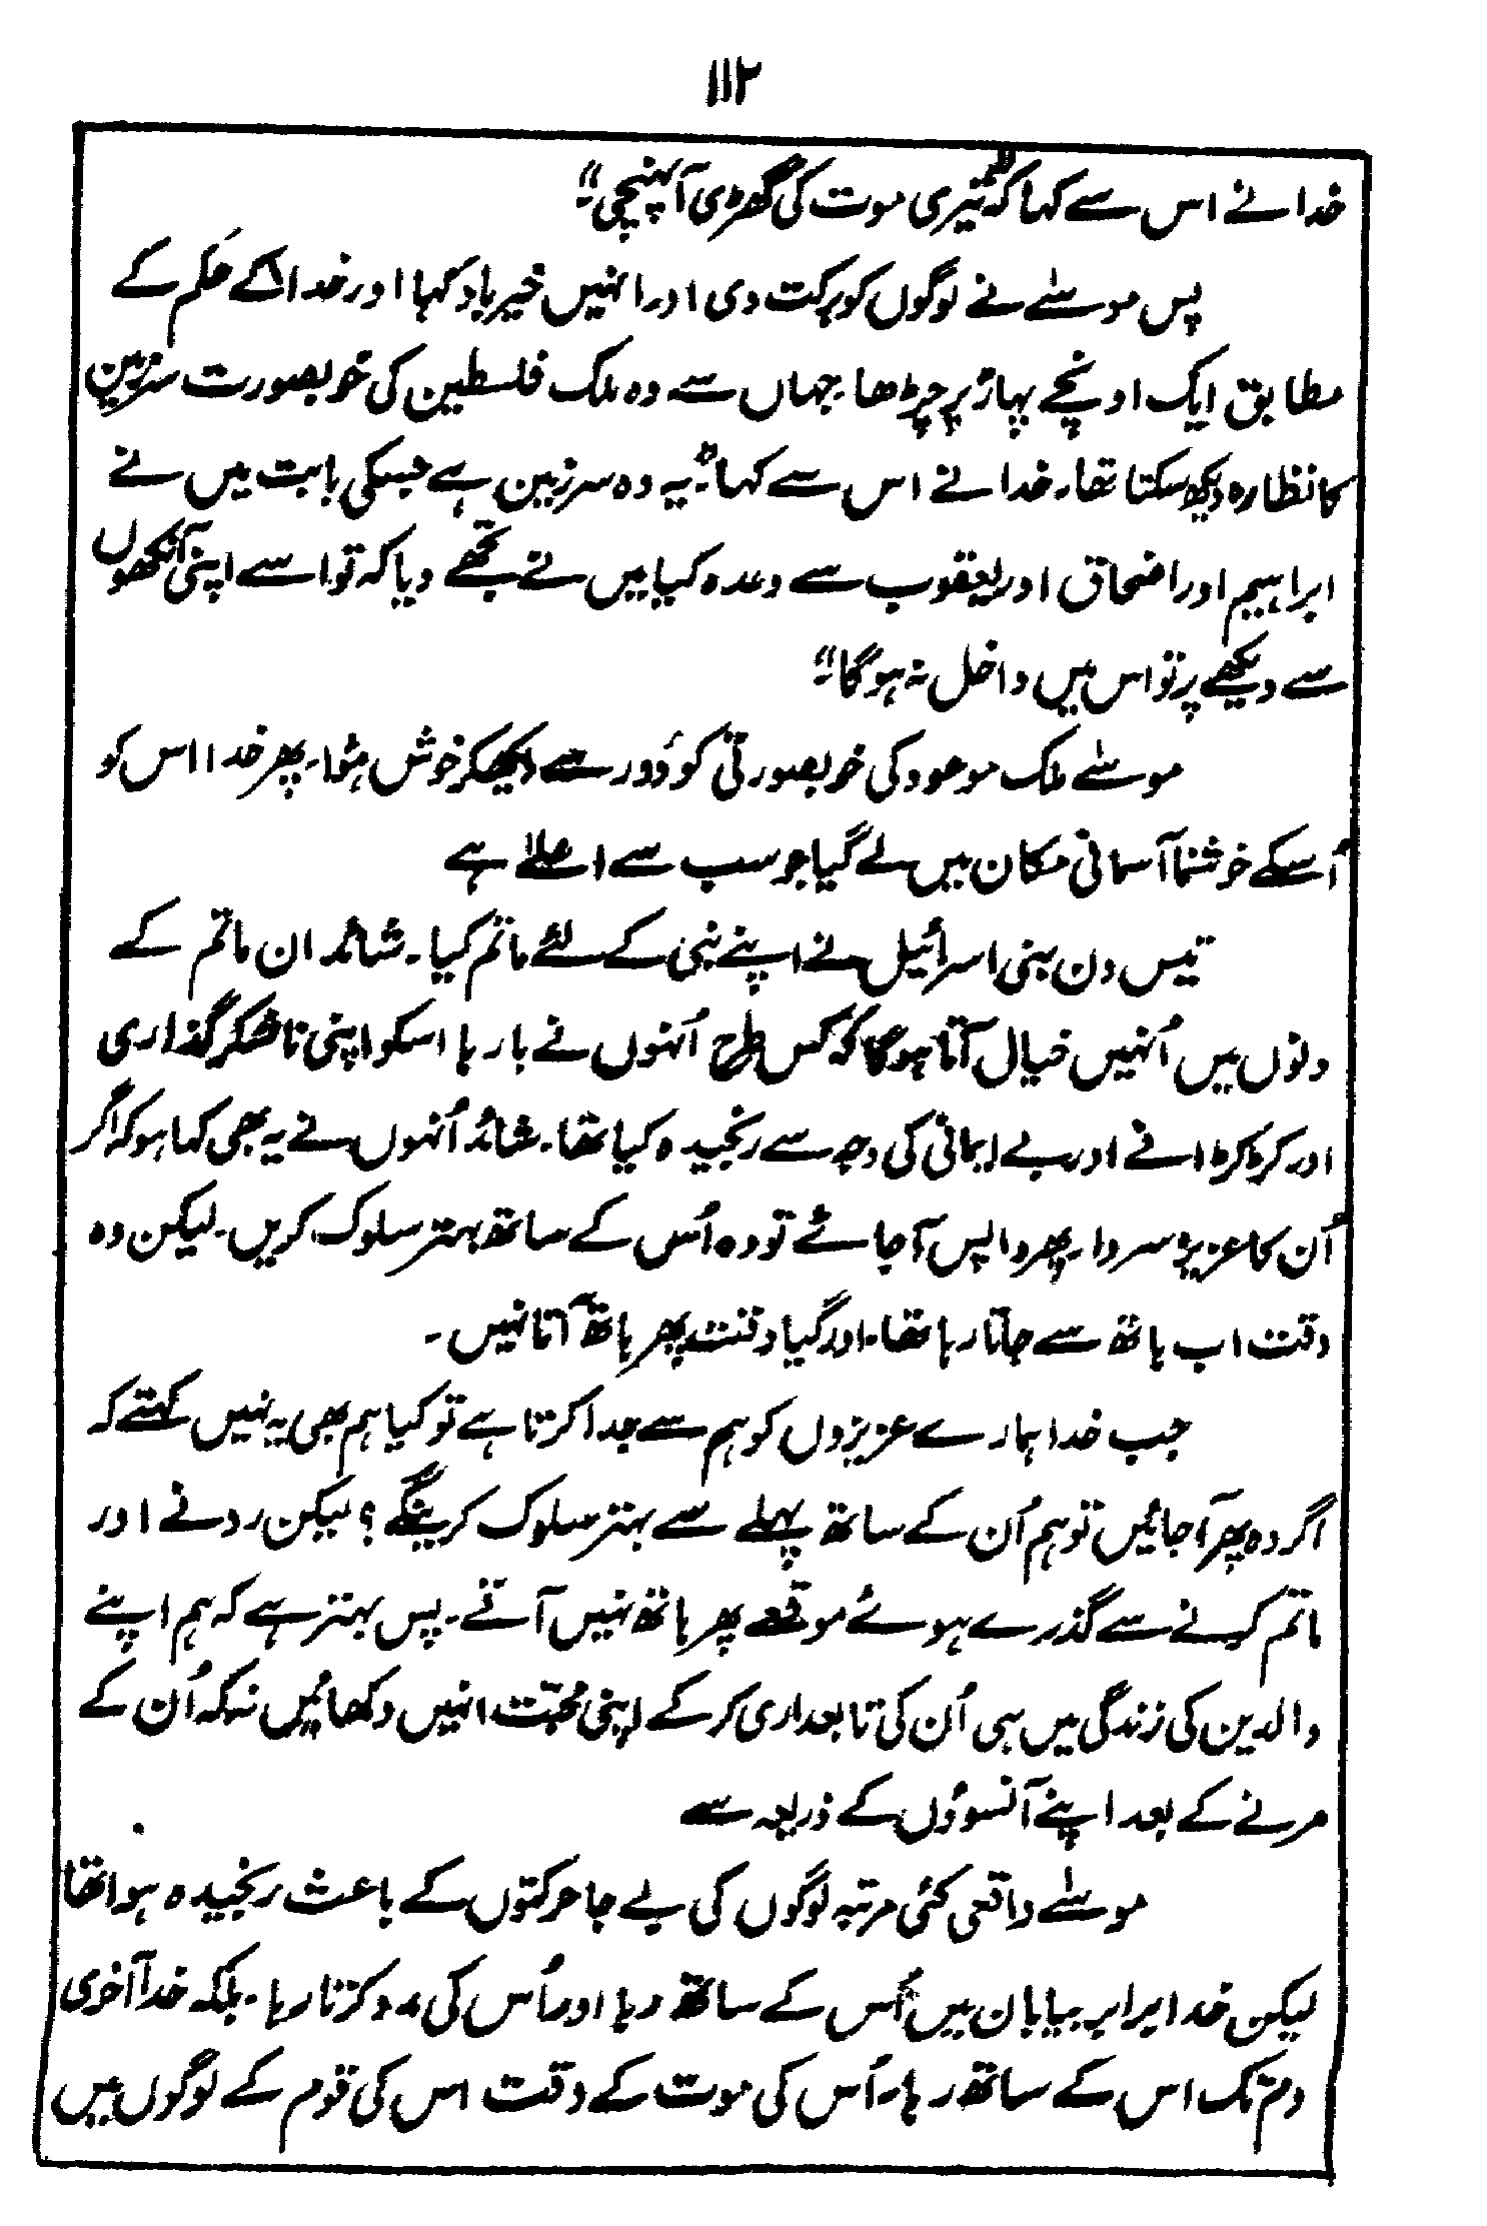 ۱۱۲
خدا نے اس سے کہا کہ "تیری موت کی گھڑی آپہنچی۔"
پس موسےٰ نے لوگوں کو برکت دی اور انہیں خیر باد کہا اور خدا کے حکم کے
مطابق ایک اونچے پہاڑ پر چڑھا جہاں سے وہ ملک فلسطین کی خوبصورت سرزمین
کا نظارہ دیکھ سکتا تھا۔ خدا نے اس سے کہا۔ "یہ وہ سرزمین ہے جسکی بابت میں نے
ابراہیم اور اضحاق اور یعقوب سے وعدہ کیا میں نے تجھے دیا کہ تو اسے اپنی آنکھوں
سے دیکھے پر تو اس میں داخل نہ ہوگا۔"
موسےٰ ملک موعود کی خوبصورتی کو دُور سے دیکھکر خوش ہؤا۔ پھر خدا اس کو
اُسکے خوشنما آسمانی مکان میں لے گیا جو سب سے اعلےٰ ہے
تیس دن بنی اسرائیل نے اپنے نبی کے لئے ماتم کیا۔ شائد ان ماتم کے
دنوں میں اُنہیں خیال آتا ہوگا کہ کس طرح اُنہوں نے بارہا اسکو اپنی ناشکرگذاری
اور کڑکڑانے اور بے ایمانی کی وجہ سے رنجیدہ کیا تھا۔ شائد اُنہوں نے یہ بھی کہا ہو کہ اگر
اُن کا عزیز سردار پھر واپس آجائے تو وہ اُس کے ساتھ بہتر سلوک کریں۔ لیکن وہ
وقت اب ہاتھ سے جاتا رہا تھا۔ اور گیا وقت پھر ہاتھ آتا نہیں۔
جب خدا ہمارے عزیزوں کو ہم سے جدا کرتا ہے تو کیا ہم بھی یہ نہیں کہتے کہ
اگر وہ پھر آجائیں تو ہم اُن کے ساتھ پہلے سے بہتر سلوک کرینگے؟ لیکن رونے اور
ماتم کرنے سے گذرے ہوئے موقعے پھر ہاتھ نہیں آتے۔ پس بہتر ہے کہ ہم اپنے
والدین کی زندگی میں ہی اُن کی تابعداری کرکے اپنی محبّت انہیں دکھائیں نہ کہ اُن کے
مرنے کے بعد اپنے آنسوؤں کے ذریعہ سے
موسےٰ واقعی کئی مرتبہ لوگوں کی بے جا حرکتوں کے باعث رنجیدہ ہوا تھا
لیکن خدا برابر بیابان میں اُس کے ساتھ رہا اور اُس کی مدد کرتا رہا۔ بلکہ خدا آخری
دم تک اس کے ساتھ رہا۔ اُس کی موت کے وقت اس کی قوم کے لوگوں میں